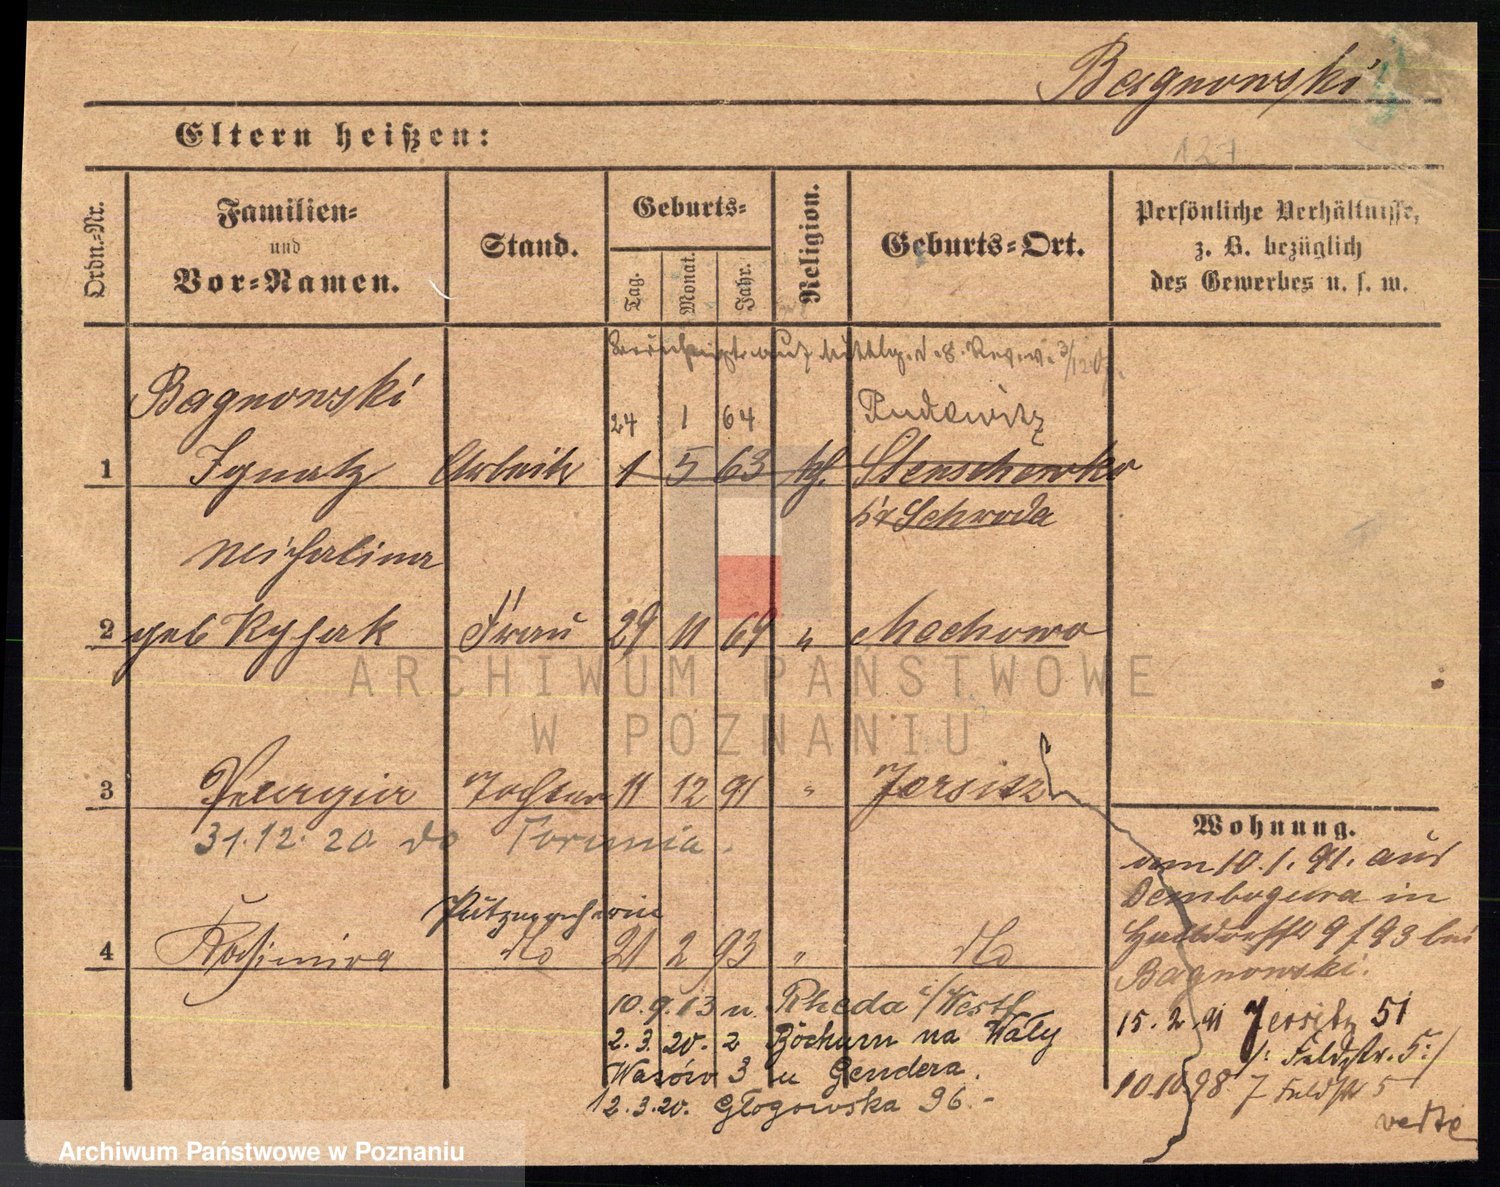 Bagnowski
127
Eltern heißen:
Ordn.-Nr.
Familien-
und
Vor-Namen.
Stand.
Geburts-
Tag.
Monat.
Jahr.
Religion.
Geburts-Ort.
Persönliche Verhältnisse,
z. B. bezüglich
des Gewerbes u. s. w.
auf
Bagnowski
24 1 64 Pudewitz
1 Ignatz Arbeiter 1 5 63 kth. Stenschewko
b/ Schroda
Michalina
2 geb Ryschak Frau 29 11 69 " Mechowo
ARCHIWUM PAŃSTWOWE
W POZNANIU
3 Pelagia Tochter 11 12 91 " Jersitz
31.12.20 do Torunia.
Putzmacherin
4 Kasimira do 21 2 93 " do
10.9.13 n. Rheda i/Westf
2.3.20. z Bochum na Wały
Wazów 3 u Gendera.
12.3.20. Głogowska 96.-
Wohnung.
am 10.1.91. aus
Dembogura in
9/93 bei
Bagnowski.
15.2.91 Jersitz 51
/: Feldstr. 5:/
10.10.98 J Feldstr 5
verte
Archiwum Państwowe w Poznaniu